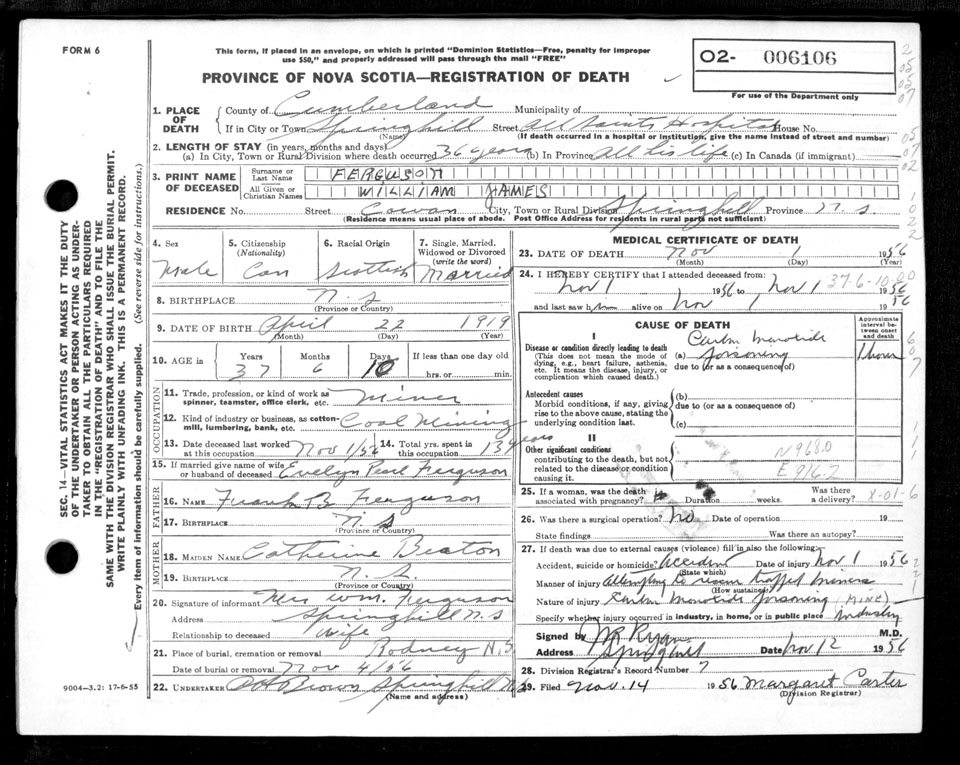 FORM 6
This form, if placed in an envelope, on which is printed "Dominion Statistics—Free, penalty for improper
use $50," and properly addressed will pass through the mail "FREE"
PROVINCE OF NOVA SCOTIA—REGISTRATION OF DEATH
02- 006106
For use of the Department only
1. PLACE OF DEATH
County of Cumberland Municipality of
If in City or Town Springhill Street All Saints Hospital House No.
(Name) (If death occurred in a hospital or institution, give the name instead of street and number)
2. LENGTH OF STAY (in years, months and days)
(a) In City, Town or Rural Division where death occurred 36 years (b) In Province All his life (c) In Canada (if immigrant)
3. PRINT NAME OF DECEASED
Surname or Last Name FERGUSON
All Given or Christian Names WILLIAM JAMES
RESIDENCE No. Street Cowan City, Town or Rural Division Springhill Province N.S.
(Residence means usual place of abode. Post Office Address for residents in rural parts not sufficient)
4. Sex Male
5. Citizenship (Nationality) Can
6. Racial Origin Scottish
7. Single, Married, Widowed or Divorced (write the word) Married
8. BIRTHPLACE N.S
(Province or Country)
9. DATE OF BIRTH April 22 1919
(Month) (Day) (Year)
10. AGE in Years 37 Months 6 Days 10 If less than one day old hrs. or min.
OCCUPATION
11. Trade, profession, or kind of work as spinner, teamster, office clerk, etc. Miner
12. Kind of industry or business, as cotton-mill, lumbering, bank, etc. Coal Mining
13. Date deceased last worked at this occupation Nov 1/56
14. Total yrs. spent in this occupation 13 years
15. If married give name of wife or husband of deceased Evelyn Pearl Ferguson
FATHER
16. NAME Frank B Ferguson
17. BIRTHPLACE N.S
(Province or Country)
MOTHER
18. MAIDEN NAME Catherine Beaton
19. BIRTHPLACE N.S.
(Province or Country)
20. Signature of informant Mrs Wm. Ferguson
Address Springhill N.S
Relationship to deceased Wife
21. Place of burial, cremation or removal Rodney N.S.
Date of burial or removal Nov 4/56
22. UNDERTAKER Brown Springhill N.S
(Name and address)
MEDICAL CERTIFICATE OF DEATH
23. DATE OF DEATH Nov 1 1956
(Month) (Day)
24. I HEREBY CERTIFY that I attended deceased from:
Nov 1 1956 to Nov 1 1956
37-6-10
and last saw him alive on Nov 1 1956
CAUSE OF DEATH
Approximate interval between onset and death
I
Disease or condition directly leading to death
(This does not mean the mode of dying, e.g., heart failure, asthenia, etc. It means the disease, injury, or complication which caused death.)
(a) Carbon Monoxide Poisoning 1 hour
due to (or as a consequence of)
Antecedent causes
Morbid conditions, if any, giving rise to the above cause, stating the underlying condition last.
(b)
due to (or as a consequence of)
(c)
II
Other significant conditions
contributing to the death, but not related to the disease or condition causing it.
N968.0
E916.2
25. If a woman, was the death associated with pregnancy? Duration weeks. Was there a delivery?
X-01-6
26. Was there a surgical operation? No Date of operation 19
State findings Was there an autopsy?
27. If death was due to external causes (violence) fill in also the following:
Accident, suicide or homicide? Accident Date of injury Nov 1 1956
(State which)
Manner of injury Attempting to rescue trapped miners
(How sustained)
Nature of injury Carbon Monoxide Poisoning (MINE)
Specify whether injury occurred in industry, in home, or in public place Industry
Signed by Ryan M.D.
Address Springhill Date Nov 12 1956
28. Division Registrar's Record Number 7
29. Filed Nov. 14 1956 Margaret Carter
(Division Registrar)
SEC. 14—VITAL STATISTICS ACT MAKES IT THE DUTY
OF THE UNDERTAKER OR PERSON ACTING AS UNDER-
TAKER TO OBTAIN ALL THE PARTICULARS REQUIRED
IN THE "REGISTRATION OF DEATH" AND TO FILE THE
SAME WITH THE DIVISION REGISTRAR WHO SHALL ISSUE THE BURIAL PERMIT.
WRITE PLAINLY WITH UNFADING INK. THIS IS A PERMANENT RECORD.
Every item of information should be carefully supplied. (See reverse side for instructions.)
9004—3.2: 17-6-55